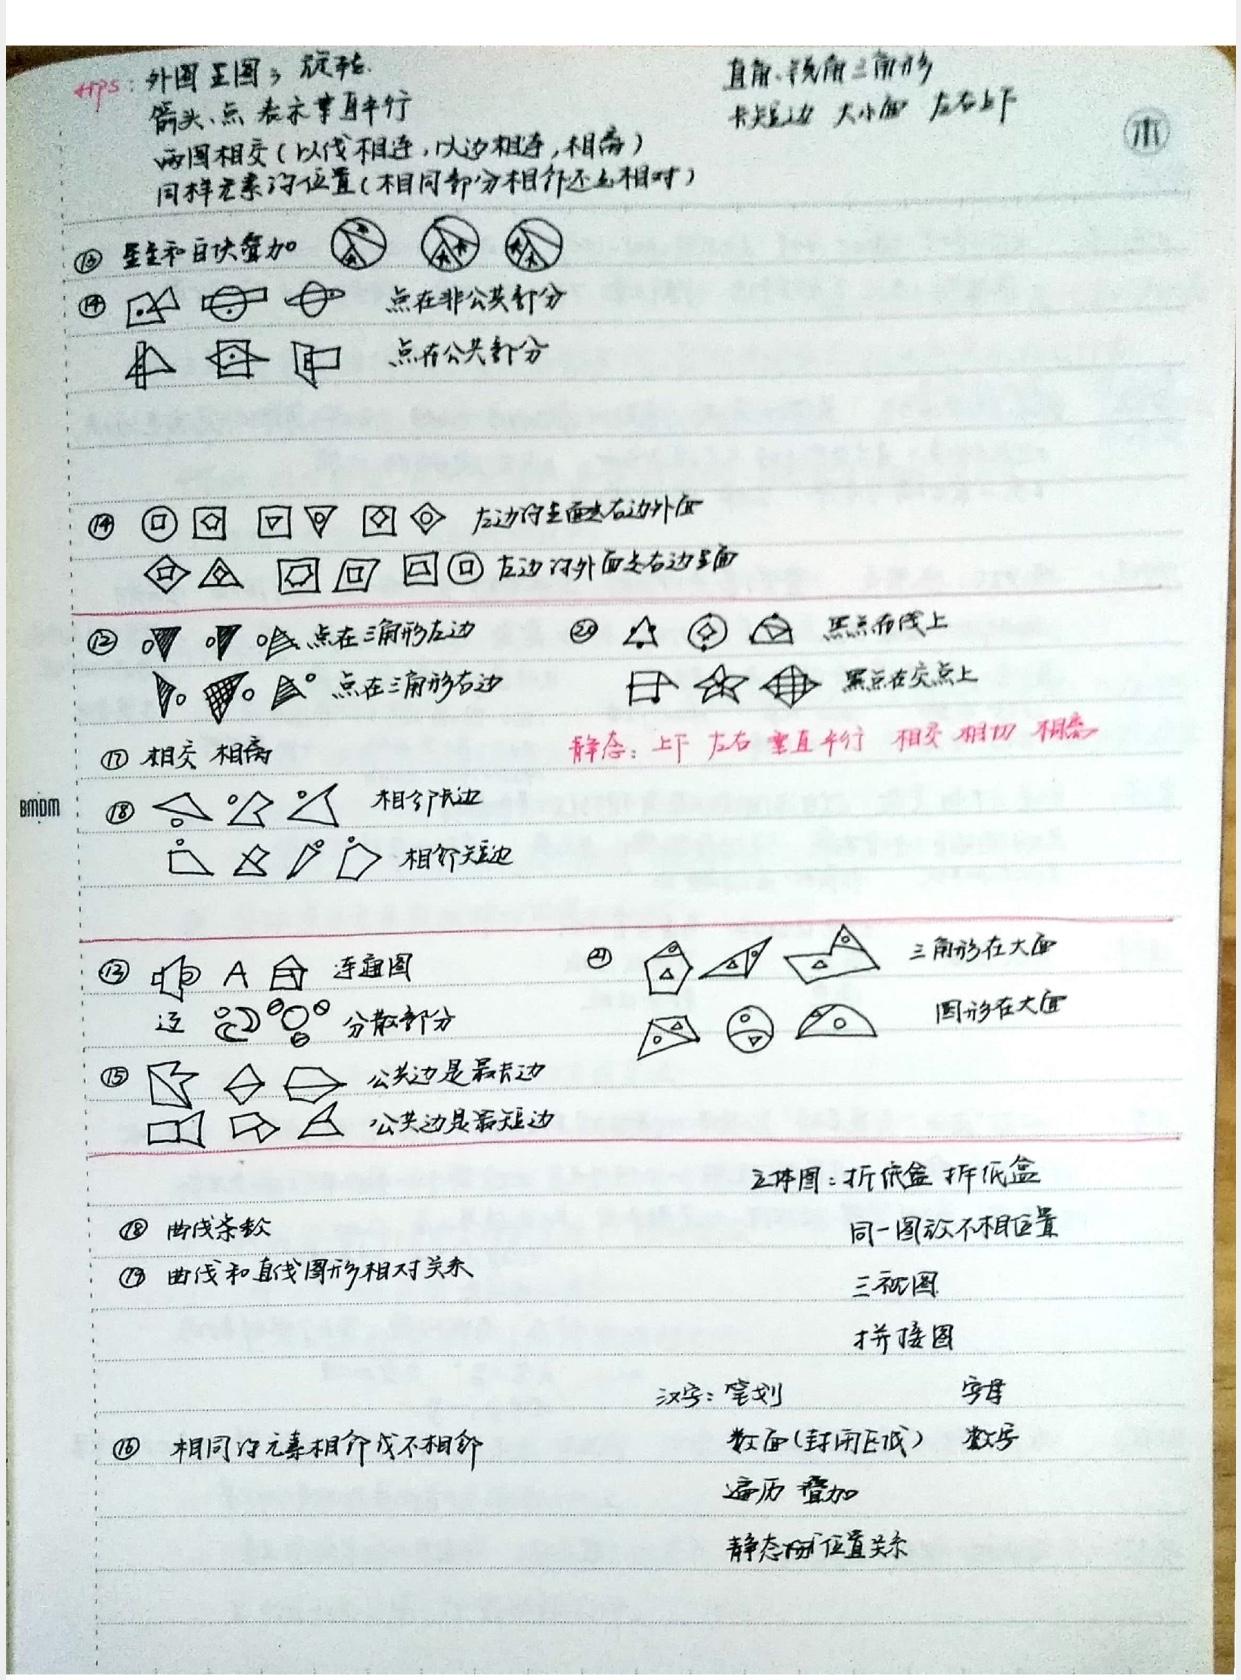 tips: 外图 里图, 旋转.
直角、钝角三角形
箭头、点 表示垂直平行
长短边 大小面 左右上下
木
两图相交(以线相连,以边相连,相离)
同样元素的位置(相同部分相邻还是相对)
⑬ 和白块叠加
⑭ 点在非公共部分
点在公共部分
⑭ 左边的里面是右边外面
左边的外面是右边里面
⑫ 点在三角形左边
⑳ 黑点在线上
点在三角形右边
黑点在交点上
静态: 上下 左右 垂直平行 相交 相切 相离
⑰ 相交 相离
BMDM
⑱ 相邻长边
相邻短边
⑬ 连通图
㉑ 三角形在大面
分散部分
圆形在大面
⑮ 公共边是最长边
公共边是最短边
立体图: 折纸盒 拆纸盒
⑱ 曲线条数
同一图放不相位置
⑲ 曲线和直线图形相对关系
三视图
拼接图
汉字: 笔划 字母
⑯ 相同的元素相邻或不相邻
数面(封闭区域) 数字
遍历 叠加
静态 位置关系